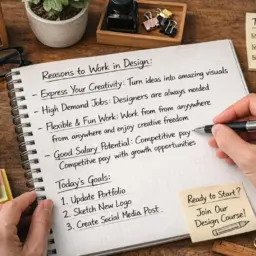 Reasons to Work in Design:
- Express Your Creativity: Turn ideas into amazing visuals
- High Demand Jobs: Designers are always needed
- Flexible & Fun Work: Work from from anywhere
from anywhere and enjoy creative freedom
- Good Salary Potential: Competitive pay
Competitive pay with growth opportunities
Today's Goals:
1. Update Portfolio
2. Sketch New Logo
3. Create Social Media Post
Ready to Start?
Join Our
Design Course!